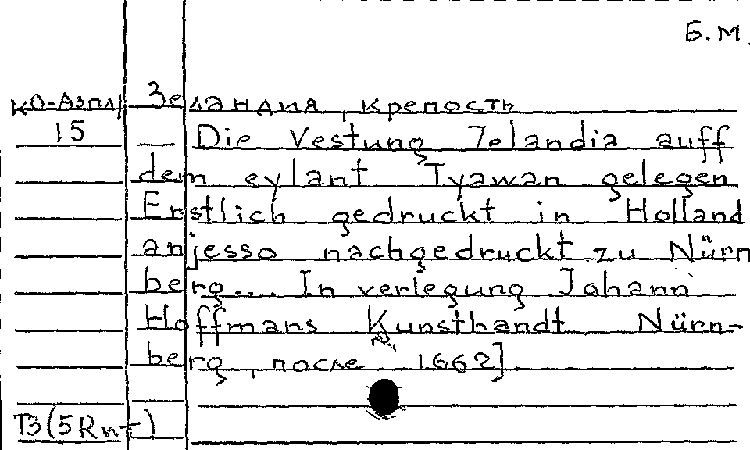 Б.М.
КО-Азпл/ Зеландия, крепость
15 — Die Vestung Zelandia auff
dem eylant Tyawan gelegen
Erstlich gedruckt in Holland
anjesso nachgedruckt zu Nürn
berg... In verlegung Johann
Hoffmans Kunsthandt Nürn-
berg, после 1662].
T3(5Rнт)